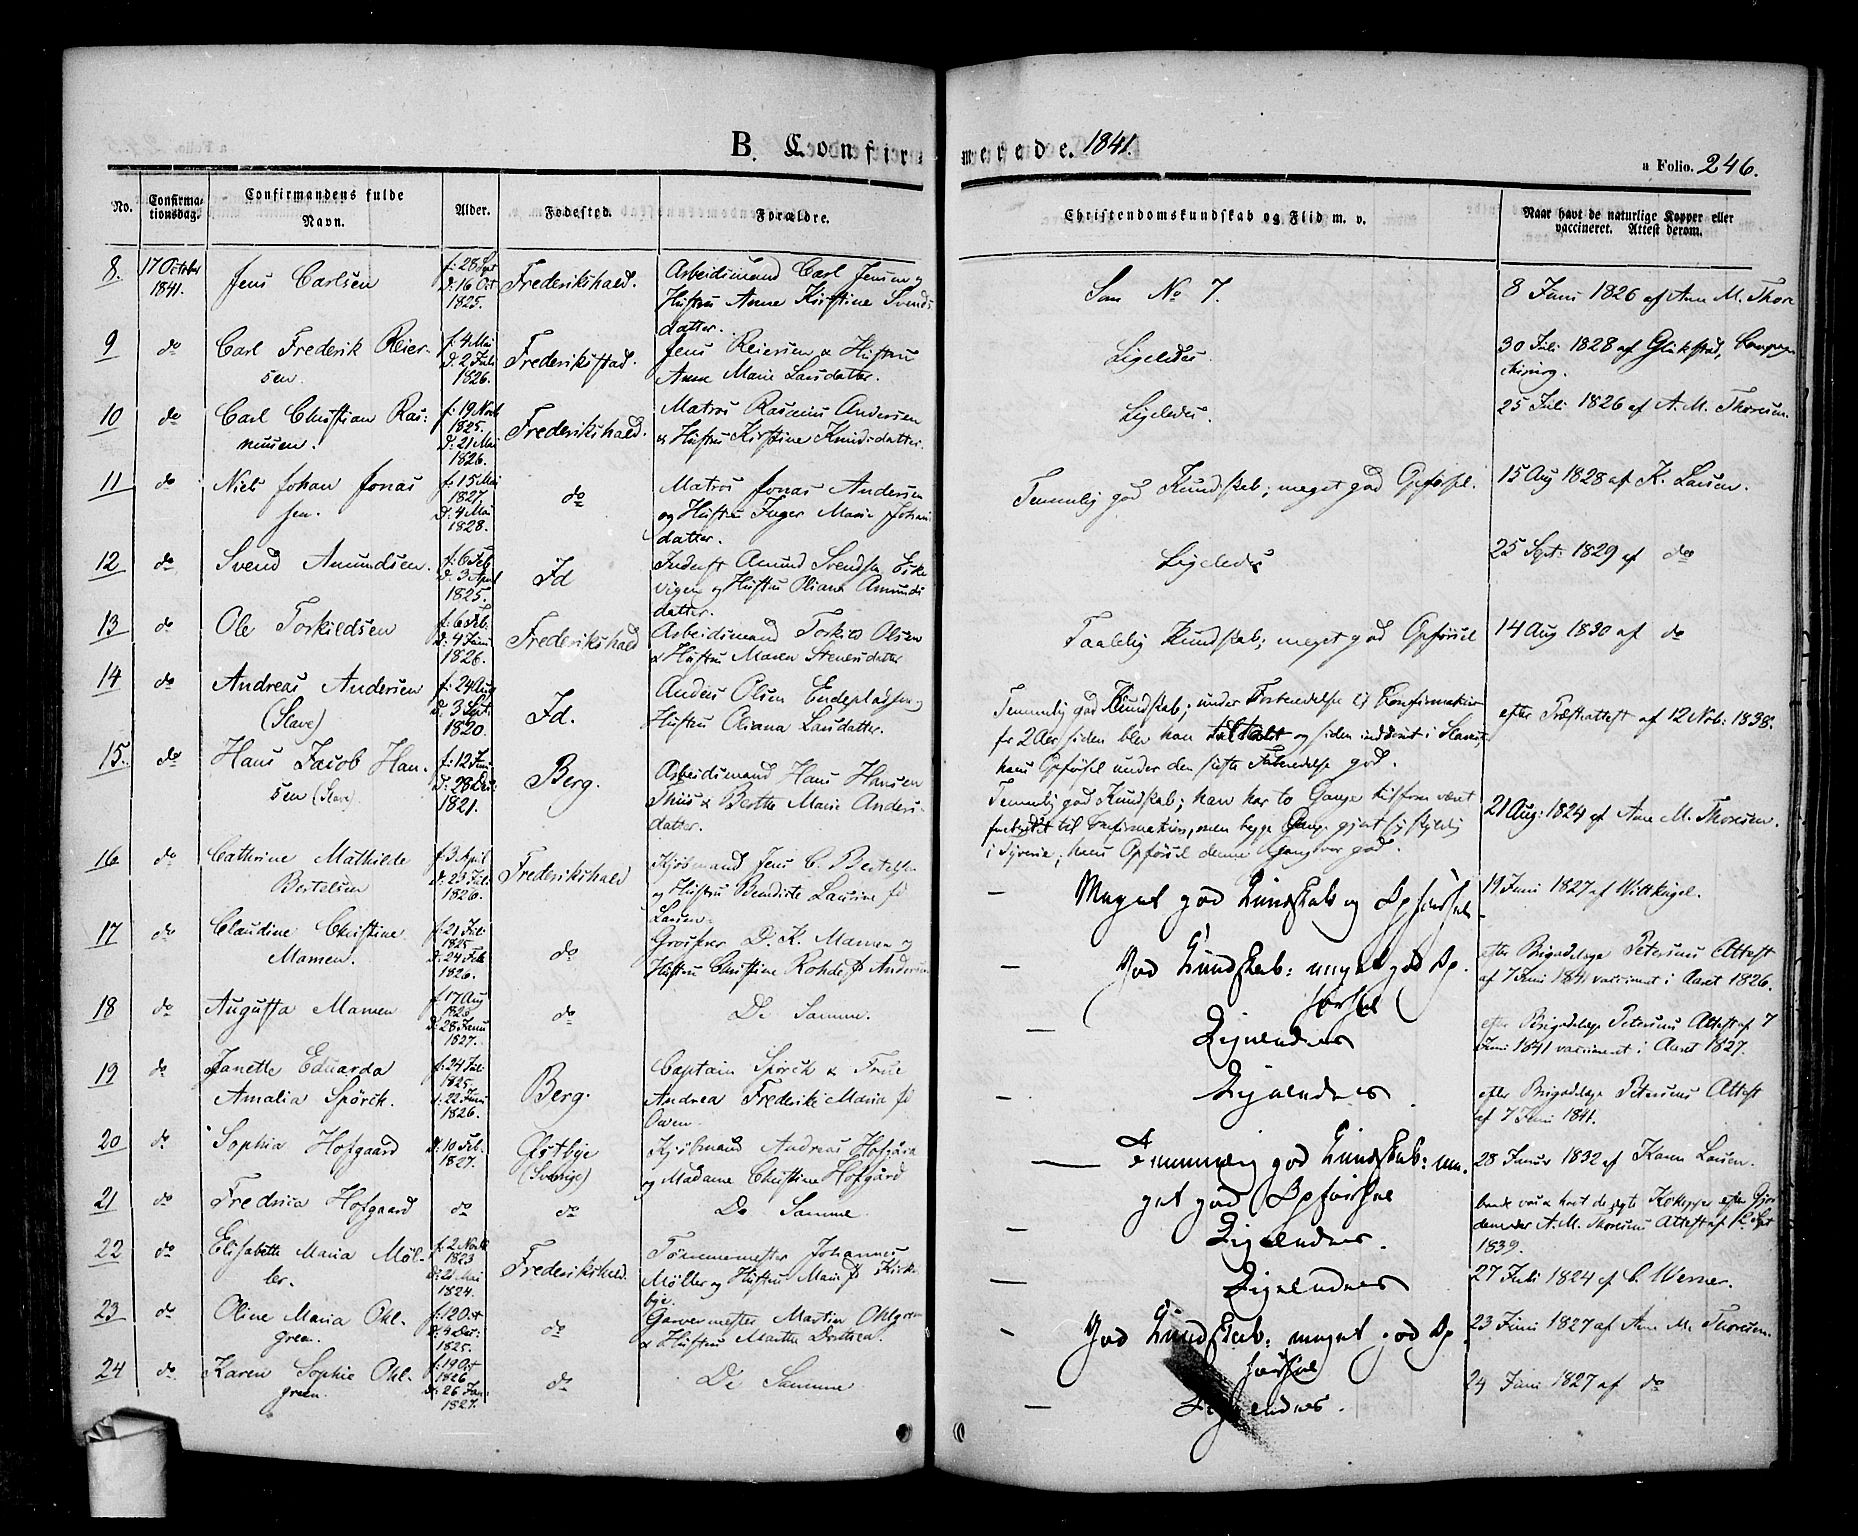 B. Confirmerede. 1841.
a Folio. 246.
No.
Confirmationsdag.
Confirmandens fulde Navn.
Alder.
Fødested.
Forældre.
Christendomskundskab og Flid m. v.
Naar havt de naturlige Kopper eller vaccineret. Attest derom.
8. 17 October Jens Carlsen f: 28 Spt Frederikshald. Arbeidsmand Carl Jensen og Som No 7. 8 Juni 1826 af Ane M. Thore
1841. D: 16 Oct Hustru Anne Kirstine Svends
1825. datter.
9 do Carl Frederik Reier- f: 4 Mai Frederiksstad. Jens Reiersen & Hustru Ligeledes. 30 Juli 1828 af Glükstad, Compagni
sen. D: 2 Juli Anne Marie Larsdatter. chirurg.
1826.
10 do Carl Christian Ras- f: 19 Novb Frederikshald. Matros Rasmus Andersen Ligeledes. 25 Juli 1826 af A. M. Thoresen.
musen. 1825. & Hustru Kirstine Knudsdatter.
D: 21 Mai
1826.
11 do Niels Johan Jonas f: 15 Mai do Matros Jonas Andersen Temmelig god Kundskab; meget god Opførsel. 15 Aug 1828 af K. Larsen.
sen. 1827. og Hustru Inger Marie Johans
D: 4 Mai datter.
1828.
12 do Svend Amundsen. f: 6 Feb Id Inderst Amund Svendsen Eske Ligeledes 25 Spt: 1829 af do
D: 3 April vigen og Hustru Oliane Amunds
1825. datter.
13 do Ole Torkildsen f: 6 Feb: Frederikshald Arbeidsmand Torkild Olsen Taalelig Kundskab; meget god Opførsel 14 Aug 1830 af do
D: 4 Juni & Hustru Maren Stenersdatter
1826.
14 do Andreas Andersen f: 24 Aug Id. Anders Olsen Endepladsen og Temmelig god Kundskab; under Forberedelse til Konfirmation efter Præsteattest af 12 Nob: 1838.
(Slave) D: 3 Spt: Hustru Oliana Larsdatter. for 2 Aar siden blev han og siden inddømt i Slaveri;
1820. hans Opførsel under den sidste Forberedelse god.
15. do Hans Jacob Han- f: 12 Juni Berg. Arbeidsmand Hans Hansen Temmelig god Kundskab; han har to Gange tilforn været 21 Aug: 1824 af Ane M. Thoresen.
sen (Slave). D: 28 Dec: Thiis & Berthe Marie Anders- forberedt til Confirmation, men begge Gange gjort sig skyldig
1821. datter. i Tyverie; hans Opførsel denne Gang var god.
16 do Cathrine Mathilde f: 3 April Frederikshald Kjøbmand Jens C. Bertelsen Meget god Kundskab og Opførsel 19 Juni 1827 af Wittkugel.
Bertelsen D: 23 Juli og Hustru Bendicte Laurine fd
1826. Larsen.
17 do Claudine Christine f: 21 Juli do Grosserer D. K. Mamen og God Kundskab: meget god Op- efter Brigadelæge Petersens Attest
Mamen. 1825. Hustru Christine Rohde fd Andersen førsel af 7 Juni 1841 vaccineret i Aaret 1826.
D: 24 Feb
1826.
18 do Augusta Mamen f: 17 Aug do De Samme. Ligeledes efter Brigadelæge Petersens Attest af 7
D: 28 Janu Juni 1841 vaccineret i Aaret 1827.
1827.
19 do Janette Eduarda f: 24 Juli Berg. Captain Spörck & Frue Ligeledes. efter Brigadelæge Petersens Attest
Amalia Spörck. 1825. Andrea Frederike Maria fd af 7 Juni 1841.
D: 22 Juni Owen.
1826.
20 do Sophia Hofgaard D: 10 Feb. Østbye Kjøbmand Andreas Hofgaard Temmelig god Kundskab: me- 28 Janur 1832 af Karen Larsen.
1827. (Sverige) og Madame Christine Hofgård get god Opførsel
21 do Fredrica Hofgaard do do De Samme. Ligeledes. Kokopper efter Gjor
demoder A. M. Thoresens Attest af 12 Spt
1839.
22 do Elisabeth Maria Möl- f: 2 Novb Frederikshald. Tömmermester Johannes Ligeledes 27 Juli 1824 af C. Werner.
ler. 1823 Møller og Hustru Marie fd Kirke
D: 21 Mai bye.
1824.
23 do Oline Maria Ohl- f: 12 Oct do Garvermester Martin Ohlgreen God Kundskab: meget god Op- 23 Juni 1827 af Ane M. Thoresen
green. D: 4 Dec: & Hustru Marthe Dorthea. førsel
1825.
24 do Karen Sophie Ohl- f: 19 Oct do De Samme Ligeledes. 24 Juni 1827 af do
green. 1826
D: 26 Jan:
1827.